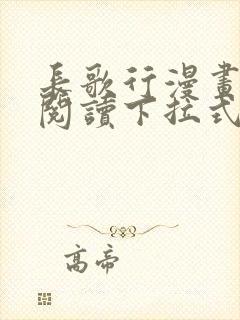 長歌行漫畫
閱讀下拉式
高帝